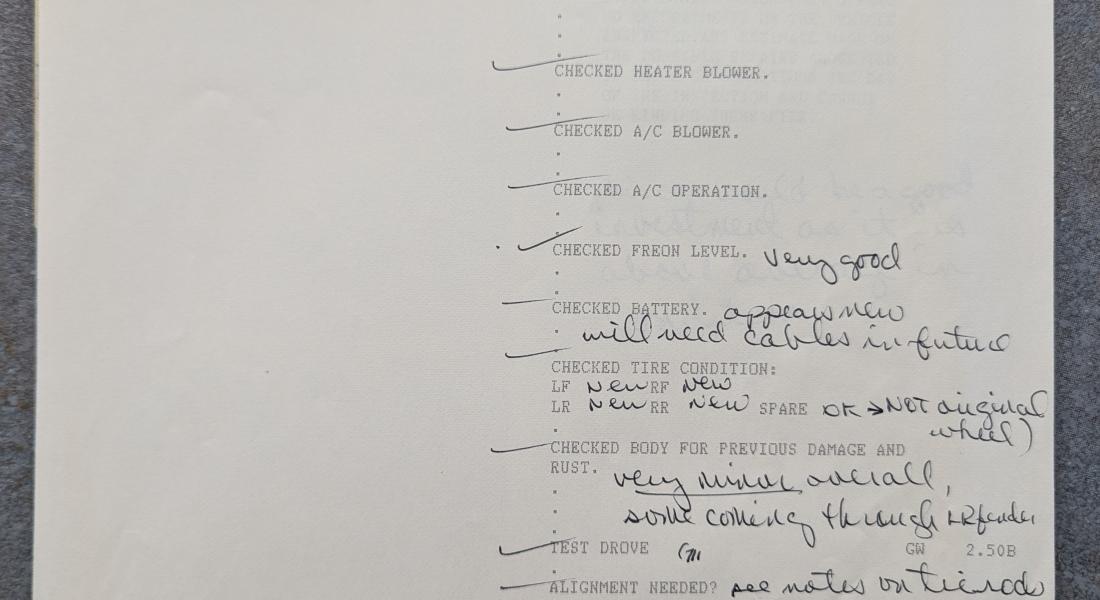 CHECKED HEATER BLOWER.
CHECKED A/C BLOWER.
CHECKED A/C OPERATION.
CHECKED FREON LEVEL. very good
CHECKED BATTERY. appears new
will need cables in future
CHECKED TIRE CONDITION:
LF New RF New
LR New RR New SPARE OK → NOT original
wheel)
CHECKED BODY FOR PREVIOUS DAMAGE AND
RUST. very minor overall,
some coming through LR fender
TEST DROVE GW 2.50B
ALIGNMENT NEEDED? see notes on tie rods